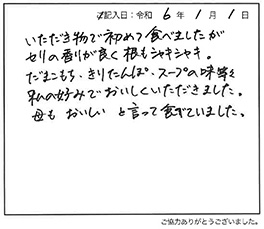 記入日：令和 6 年 1 月 1 日
いただき物で初めて食べましたが
セリの香りが良く根もシャキシャキ。
だまこもち、きりたんぽ、スープの味等
私の好みでおいしくいただきました。
母も おいしい と言って食べていました。
ご協力ありがとうございました。